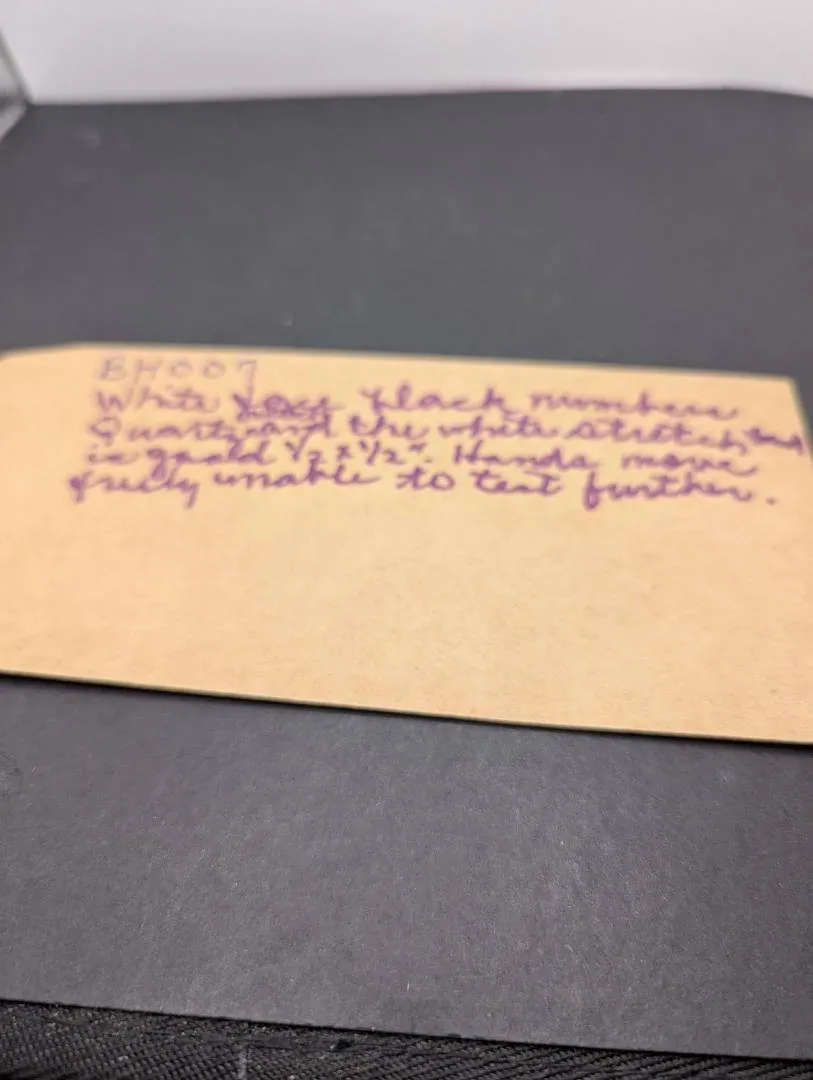 BH007
White face black numbers
Quartz and the white stretch band
is goold 1/2 x 1/2". Hands move
freely unable to test further.